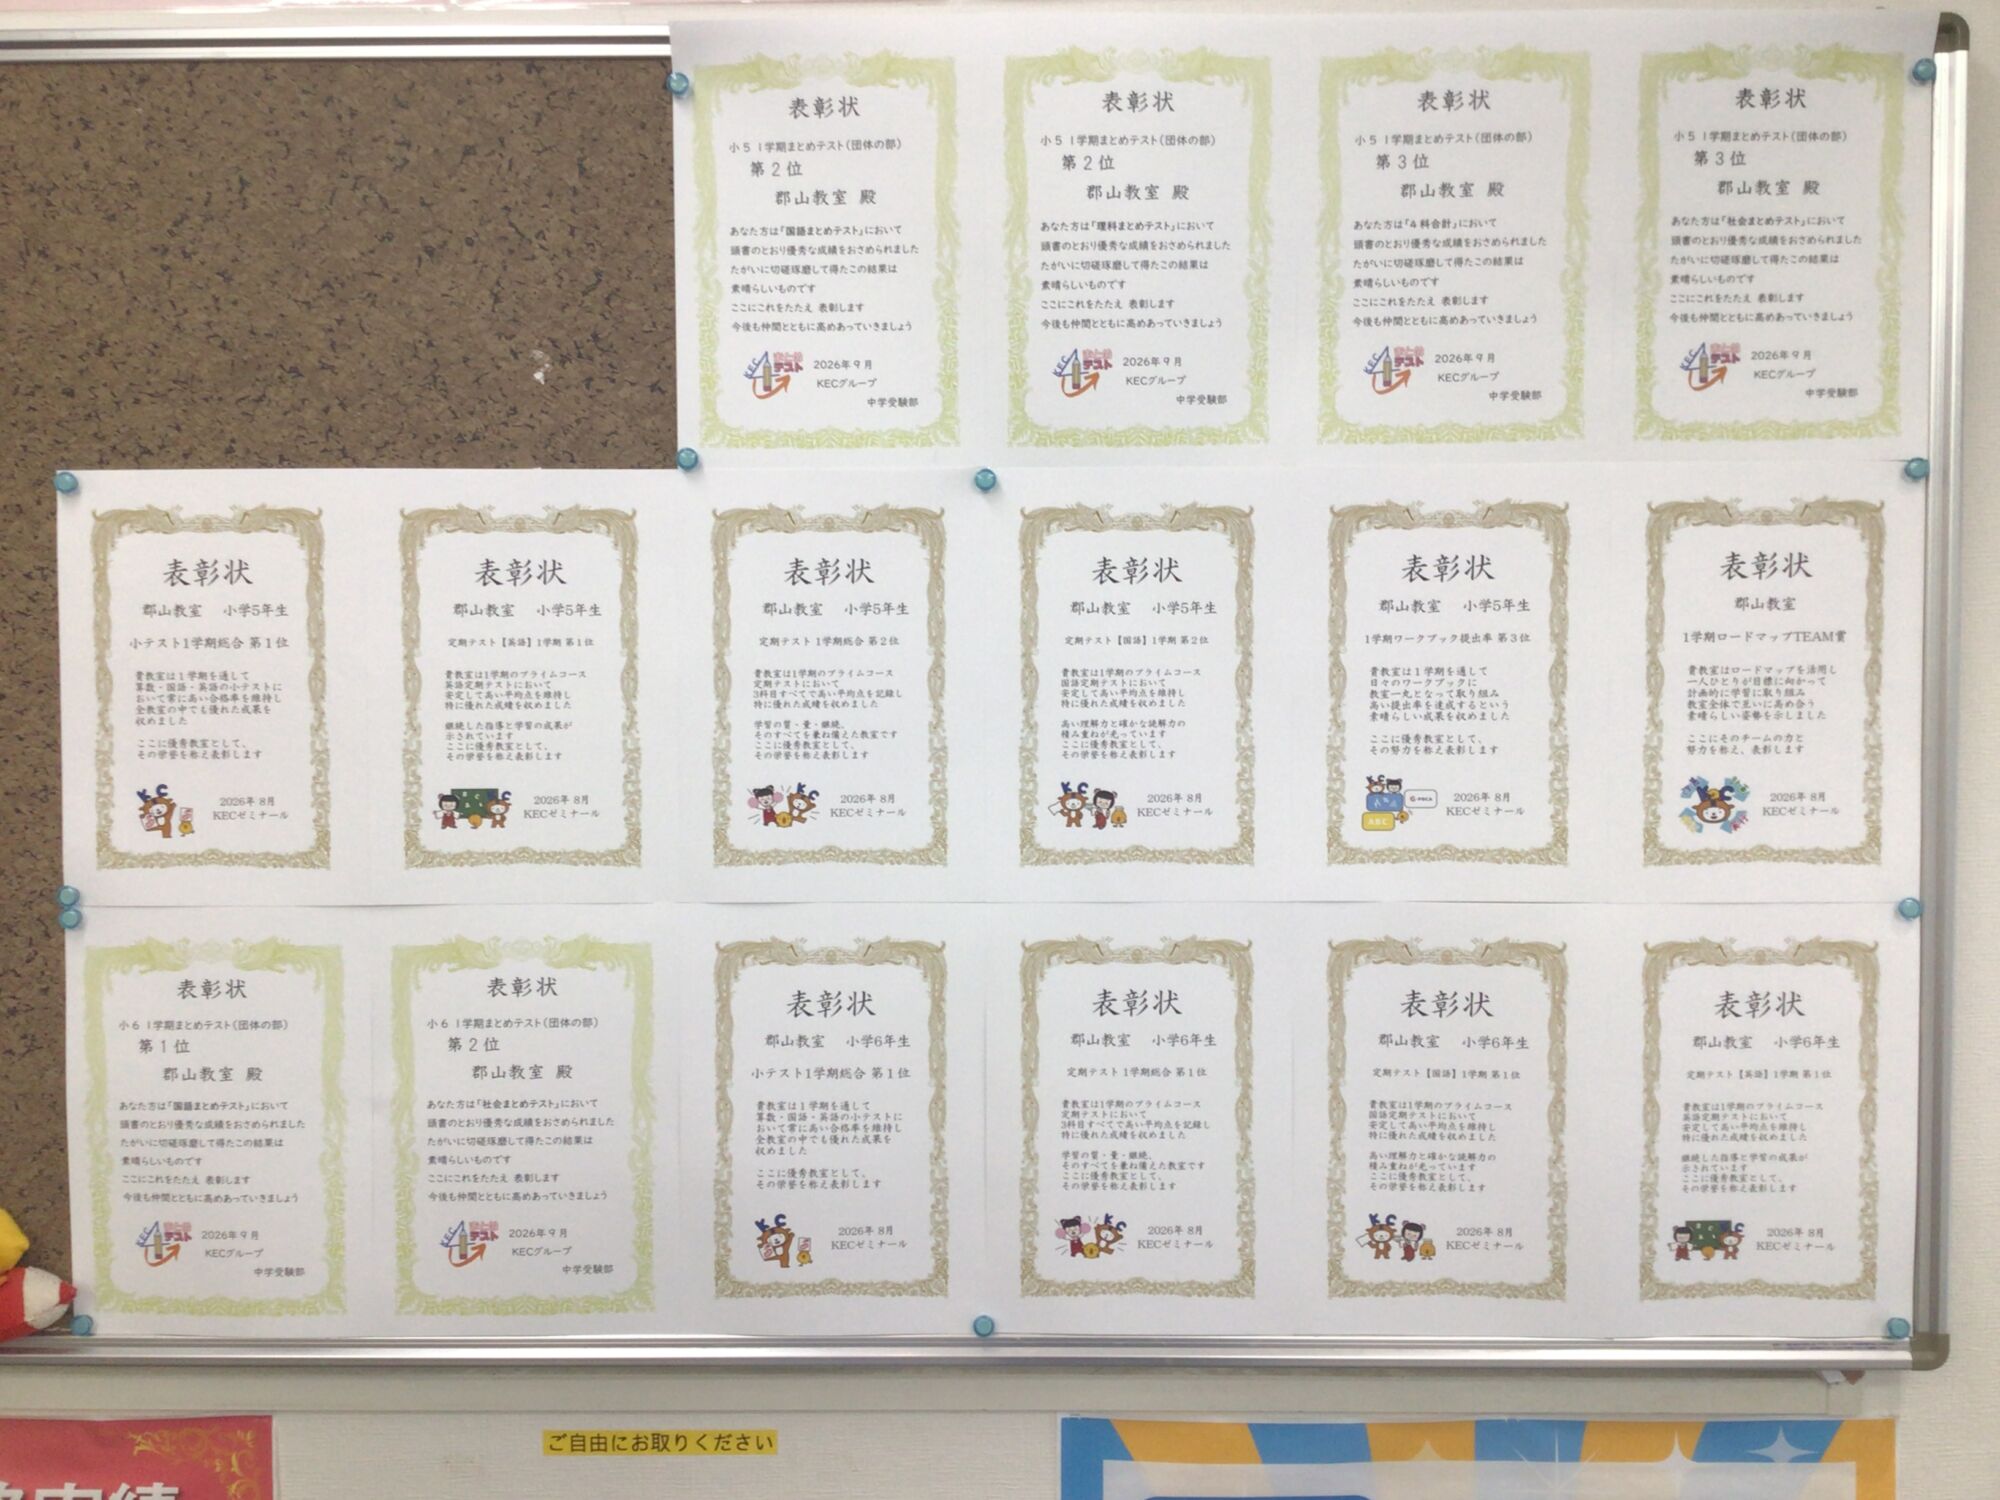 表彰状
小5 1学期まとめテスト(団体の部)
第2位
郡山教室 殿
あなた方は「国語まとめテスト」において
頭書のとおり優秀な成績をおさめられました
たがいに切磋琢磨して得たこの結果は
素晴らしいものです
ここにこれをたたえ 表彰します
今後も仲間とともに高めあっていきましょう
KEC
まとめ
テスト
2026年9月
KECグループ
中学受験部
表彰状
小5 1学期まとめテスト(団体の部)
第2位
郡山教室 殿
あなた方は「理科まとめテスト」において
頭書のとおり優秀な成績をおさめられました
たがいに切磋琢磨して得たこの結果は
素晴らしいものです
ここにこれをたたえ 表彰します
今後も仲間とともに高めあっていきましょう
KEC
まとめ
テスト
2026年9月
KECグループ
中学受験部
表彰状
小5 1学期まとめテスト(団体の部)
第3位
郡山教室 殿
あなた方は「4科合計」において
頭書のとおり優秀な成績をおさめられました
たがいに切磋琢磨して得たこの結果は
素晴らしいものです
ここにこれをたたえ 表彰します
今後も仲間とともに高めあっていきましょう
KEC
まとめ
テスト
2026年9月
KECグループ
中学受験部
表彰状
小5 1学期まとめテスト(団体の部)
第3位
郡山教室 殿
あなた方は「社会まとめテスト」において
頭書のとおり優秀な成績をおさめられました
たがいに切磋琢磨して得たこの結果は
素晴らしいものです
ここにこれをたたえ 表彰します
今後も仲間とともに高めあっていきましょう
KEC
まとめ
テスト
2026年9月
KECグループ
中学受験部
表彰状
郡山教室 小学5年生
小テスト1学期総合 第1位
貴教室は1学期を通して
算数・国語・英語の小テストに
おいて常に高い合格率を維持し
全教室の中でも優れた成果を
収めました
ここに優秀教室として、
その学誉を称え表彰します
KC
2026年 8月
KECゼミナール
表彰状
郡山教室 小学5年生
定期テスト【英語】1学期 第1位
貴教室は1学期のプライムコース
英語定期テストにおいて
安定して高い平均点を維持し
特に優れた成績を収めました
継続した指導と学習の成果が
示されています
ここに優秀教室として、
その学誉を称え表彰します
2026年 8月
KECゼミナール
表彰状
郡山教室 小学5年生
定期テスト 1学期総合 第2位
貴教室は1学期のプライムコース
定期テストにおいて
3科目すべてで高い平均点を記録し
特に優れた成績を収めました
学習の質・量・継続、
そのすべてを兼ね備えた教室です
ここに優秀教室として、
その学誉を称え表彰します
KC
2026年 8月
KECゼミナール
表彰状
郡山教室 小学5年生
定期テスト【国語】1学期 第2位
貴教室は1学期のプライムコース
国語定期テストにおいて
安定して高い平均点を維持し
特に優れた成績を収めました
高い理解力と確かな読解力の
積み重ねが光っています
ここに優秀教室として、
その学誉を称え表彰します
KC
2026年 8月
KECゼミナール
表彰状
郡山教室 小学5年生
1学期ワークブック提出率 第3位
貴教室は1学期を通して
日々のワークブックに
教室一丸となって取り組み
高い提出率を達成するという
素晴らしい成果を収めました
ここに優秀教室として、
その努力を称え表彰します
KC
ABC
2026年 8月
KECゼミナール
表彰状
郡山教室
1学期ロードマップTEAM賞
貴教室はロードマップを活用し
一人ひとりが目標に向かって
計画的に学習に取り組み
教室全体で互いに高め合う
素晴らしい姿勢を示しました
ここにそのチームの力と
努力を称え、表彰します
2026年 8月
KECゼミナール
表彰状
小6 1学期まとめテスト(団体の部)
第1位
郡山教室 殿
あなた方は「国語まとめテスト」において
頭書のとおり優秀な成績をおさめられました
たがいに切磋琢磨して得たこの結果は
素晴らしいものです
ここにこれをたたえ 表彰します
今後も仲間とともに高めあっていきましょう
KEC
まとめ
テスト
2026年9月
KECグループ
中学受験部
表彰状
小6 1学期まとめテスト(団体の部)
第2位
郡山教室 殿
あなた方は「社会まとめテスト」において
頭書のとおり優秀な成績をおさめられました
たがいに切磋琢磨して得たこの結果は
素晴らしいものです
ここにこれをたたえ 表彰します
今後も仲間とともに高めあっていきましょう
KEC
まとめ
テスト
2026年9月
KECグループ
中学受験部
表彰状
郡山教室 小学6年生
小テスト1学期総合 第1位
貴教室は1学期を通して
算数・国語・英語の小テストに
おいて常に高い合格率を維持し
全教室の中でも優れた成果を
収めました
ここに優秀教室として、
その学誉を称え表彰します
KC
2026年 8月
KECゼミナール
表彰状
郡山教室 小学6年生
定期テスト 1学期総合 第1位
貴教室は1学期のプライムコース
定期テストにおいて
3科目すべてで高い平均点を記録し
特に優れた成績を収めました
学習の質・量・継続、
そのすべてを兼ね備えた教室です
ここに優秀教室として、
その学誉を称え表彰します
KC
2026年 8月
KECゼミナール
表彰状
郡山教室 小学6年生
定期テスト【国語】1学期 第1位
貴教室は1学期のプライムコース
国語定期テストにおいて
安定して高い平均点を維持し
特に優れた成績を収めました
高い理解力と確かな読解力の
積み重ねが光っています
ここに優秀教室として、
その学誉を称え表彰します
KC
2026年 8月
KECゼミナール
表彰状
郡山教室 小学6年生
定期テスト【英語】1学期 第1位
貴教室は1学期のプライムコース
英語定期テストにおいて
安定して高い平均点を維持し
特に優れた成績を収めました
継続した指導と学習の成果が
示されています
ここに優秀教室として、
その学誉を称え表彰します
2026年 8月
KECゼミナール
ご自由にお取りください